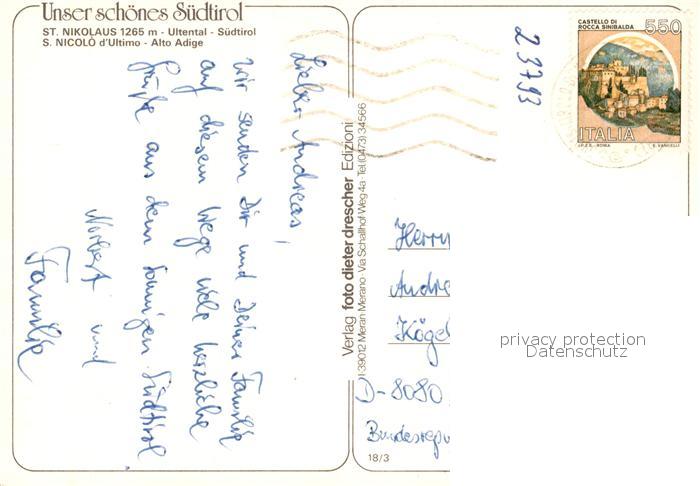 Unser schönes Südtirol
ST. NIKOLAUS 1265 m - Ultental - Südtirol
S. NICOLÒ d'Ultimo - Alto Adige
Lieber Andreas,
wir senden Dir und Deiner Familie
auf diesem Wege viele herzliche
Grüße aus dem sonnigen Südtirol
Norbert und
Familie
Verlag foto dieter drescher Edizioni
I 39012 Meran Merano · Via Schallhof Weg 4a · Tel. (0473) 34566
23793
CASTELLO DI
ROCCA SINIBALDA
550
ITALIA
I.P.Z.S. - ROMA
E. VANGELLI
Herrn
Andre
Kögel
D-8080
Bundesrepu
18/3
privacy protection
Datenschutz